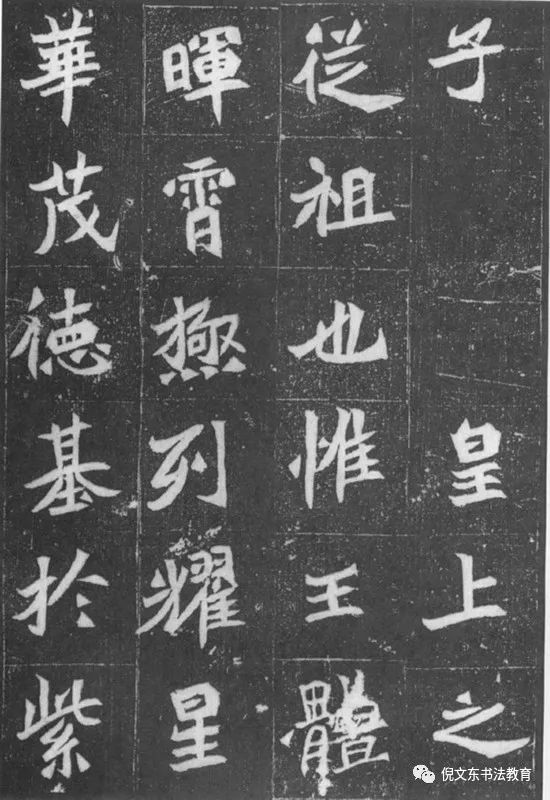 子　　皇上之
從祖也惟王體
暉霄極列耀星
華茂德基於紫
倪文东书法教育